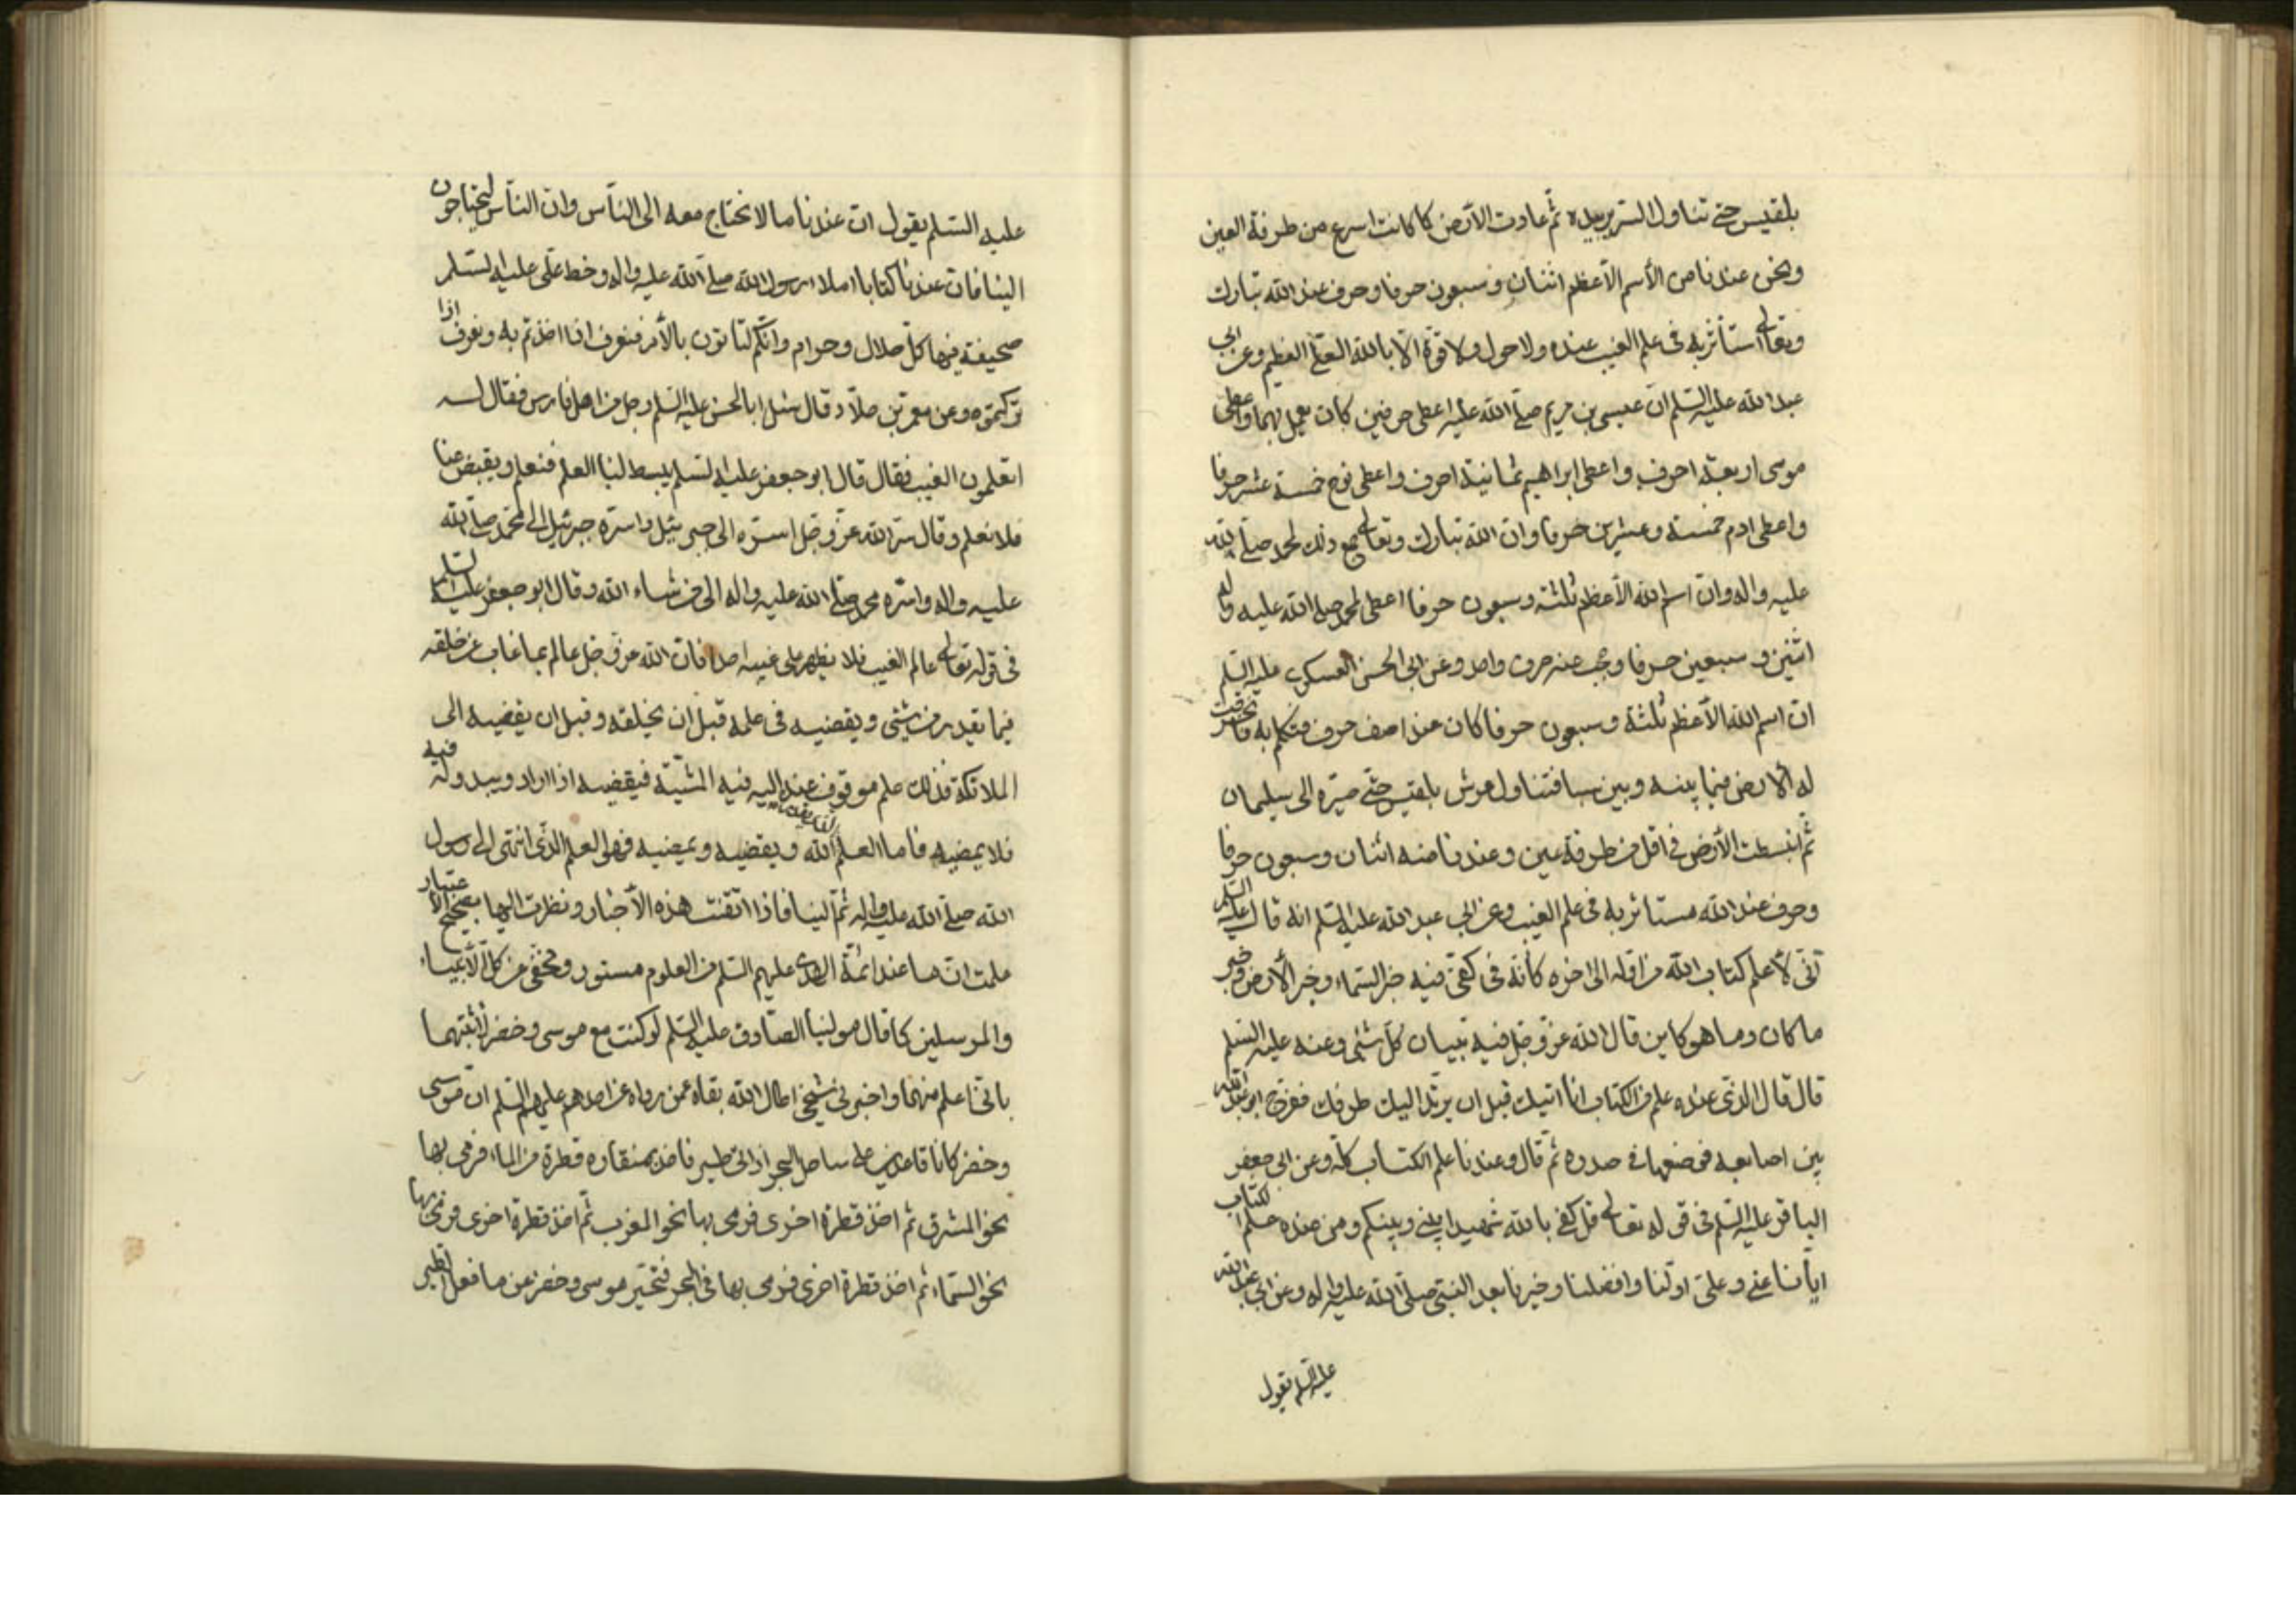 بلقيس حتى تناول السرير بيده ثم عادت الأرض كما كانت اسرع من طرفة العين
ونحن عندنا من الأسم الأعظم اثنان وسبعون حرفا وحرف عند الله تبارك
وتعالى استأثر به فى علم الغيب عنده ولا حول ولا قوة الا بالله العلي العظيم وعن ابي
عبد الله عليه السلم ان عيسى بن مريم صلى الله عليه اعطى حرفين كان يعمل بهما واعطى
موسى اربعة احرف واعطى ابراهيم ثمانية احرف واعطى نوح خمسة عشر حرفا
واعطى ادم خمسة وعشرين حرفا وان الله تبارك وتعالى جمع ذلك لمحمد صلى الله
عليه واله وان اسم الله الأعظم ثلثة وسبعون حرفا اعطى لمحمد صلى الله عليه واله
اثنين وسبعين حرفا وحجب عنه حرف واحد وعن ابى الحسن العسكرى عليه السلم
ان اسم الله الأعظم ثلثة وسبعون حرفا كان عند اصف حرف فتكلم به فانخرقت
له الارض فيما بينه وبين سبا فتناول عرش بلقيس حتى صيره الى سليمان
ثم انبسطت الأرض فى اقل من طرفة عين وعندنا منه اثنان وسبعون حرفا
وحرف عند الله مستاثر به فى علم الغيب وعن ابي عبد الله عليه السلم انه قال عليه السلم
انى لأعلم كتاب الله من اوله الى اخره كأنه فى كفى فيه خبر السماء وخبر الأرض وخبر
ما كان وما هو كاين قال الله عز وجل فيه تبيان كل شئ وعنه عليه السلم
قال قال الذى عنده علم من الكتاب انا اتيك قبل ان يرتد اليك طرفك ففرج ابو عبد الله
بين اصابعه فوضعها فى صدره ثم قال وعندنا علم الكتاب كله وعن ابى جعفر
الباقر عليه السلم فى قوله تعالى قل كفى بالله شهيدا بينى وبينكم ومن عنده علم الكتاب
ايانا عنى وعلى اولنا وافضلنا وخيرنا بعد النبى صلى الله عليه واله وعن ابى عبد الله
عليه السلم يقول
عليه السلم يقول ان عندنا ما لا نحتاج معه الى الناس وان الناس ليحتاجون
الينا فان عندنا كتابا املاء رسول الله صلى الله عليه واله وخط على عليه السلم
صحيفة فيها كل حلال وحرام وانكم لتاتون بالأمر فنعرف اذا اخذتم به ونعرف اذا
تركتموه وعن معمر بن خلاد قال سئل ابا الحسن عليه السلم رجل من اهل فارس فقال له
اتعلمون الغيب فقال قال ابو جعفر عليه السلم يبسط لنا العلم فنعلم ويقبض عنا
فلا نعلم وقال سر الله عز وجل اسره الى جبرئيل واسره جبرئيل الى محمد صلى الله
عليه واله واسره محمد صلى الله عليه واله الى من شاء الله وقال ابو جعفر عليه السلم
فى قوله تعالى عالم الغيب فلا يظهر على غيبه احدا فان الله عز وجل عالم بما غاب عن خلقه
فيما يقدر من شئ ويقضيه فى علمه قبل ان يخلقه وقبل ان يفضيه الى
الملائكة فذلك علم موقوف عنده اليه فيه المشية فيقضيه اذا اراد ويبدو له فيه
فلا يمضيه فاما العلم الذى يقدره الله ويقضيه ويمضيه فهو العلم الذى انتهى الى رسول
الله صلى الله عليه واله ثم الينا فاذا اتقنت هذه الأخبار ونظرت اليها بصحيح الاعتبار
علمت ان ما عند ائمة الهدى عليهم السلم من العلوم مستور ومخفى من كل الأنبياء
والمرسلين كما قال مولينا الصادق عليه السلم لو كنت مع موسى وخضر لأنبئتهما
بانى اعلم منهما واخبرنى شيخى اطال الله بقاه عمن رواه عن احدهم عليهم السلم ان موسى
وخضر كانا قاعدين على ساحل البحر اذ اتى طير فاخذ بمنقاره قطرة من الماء فرمى بها
نحو المشرق ثم اخذ قطرة اخرى فرمى بها نحو المغرب ثم اخذ قطرة اخرى فرمى بها
نحو السماء ثم اخذ قطرة اخرى فرمى بها فى البحر فتحير موسى وخضر من ما فعل الطير